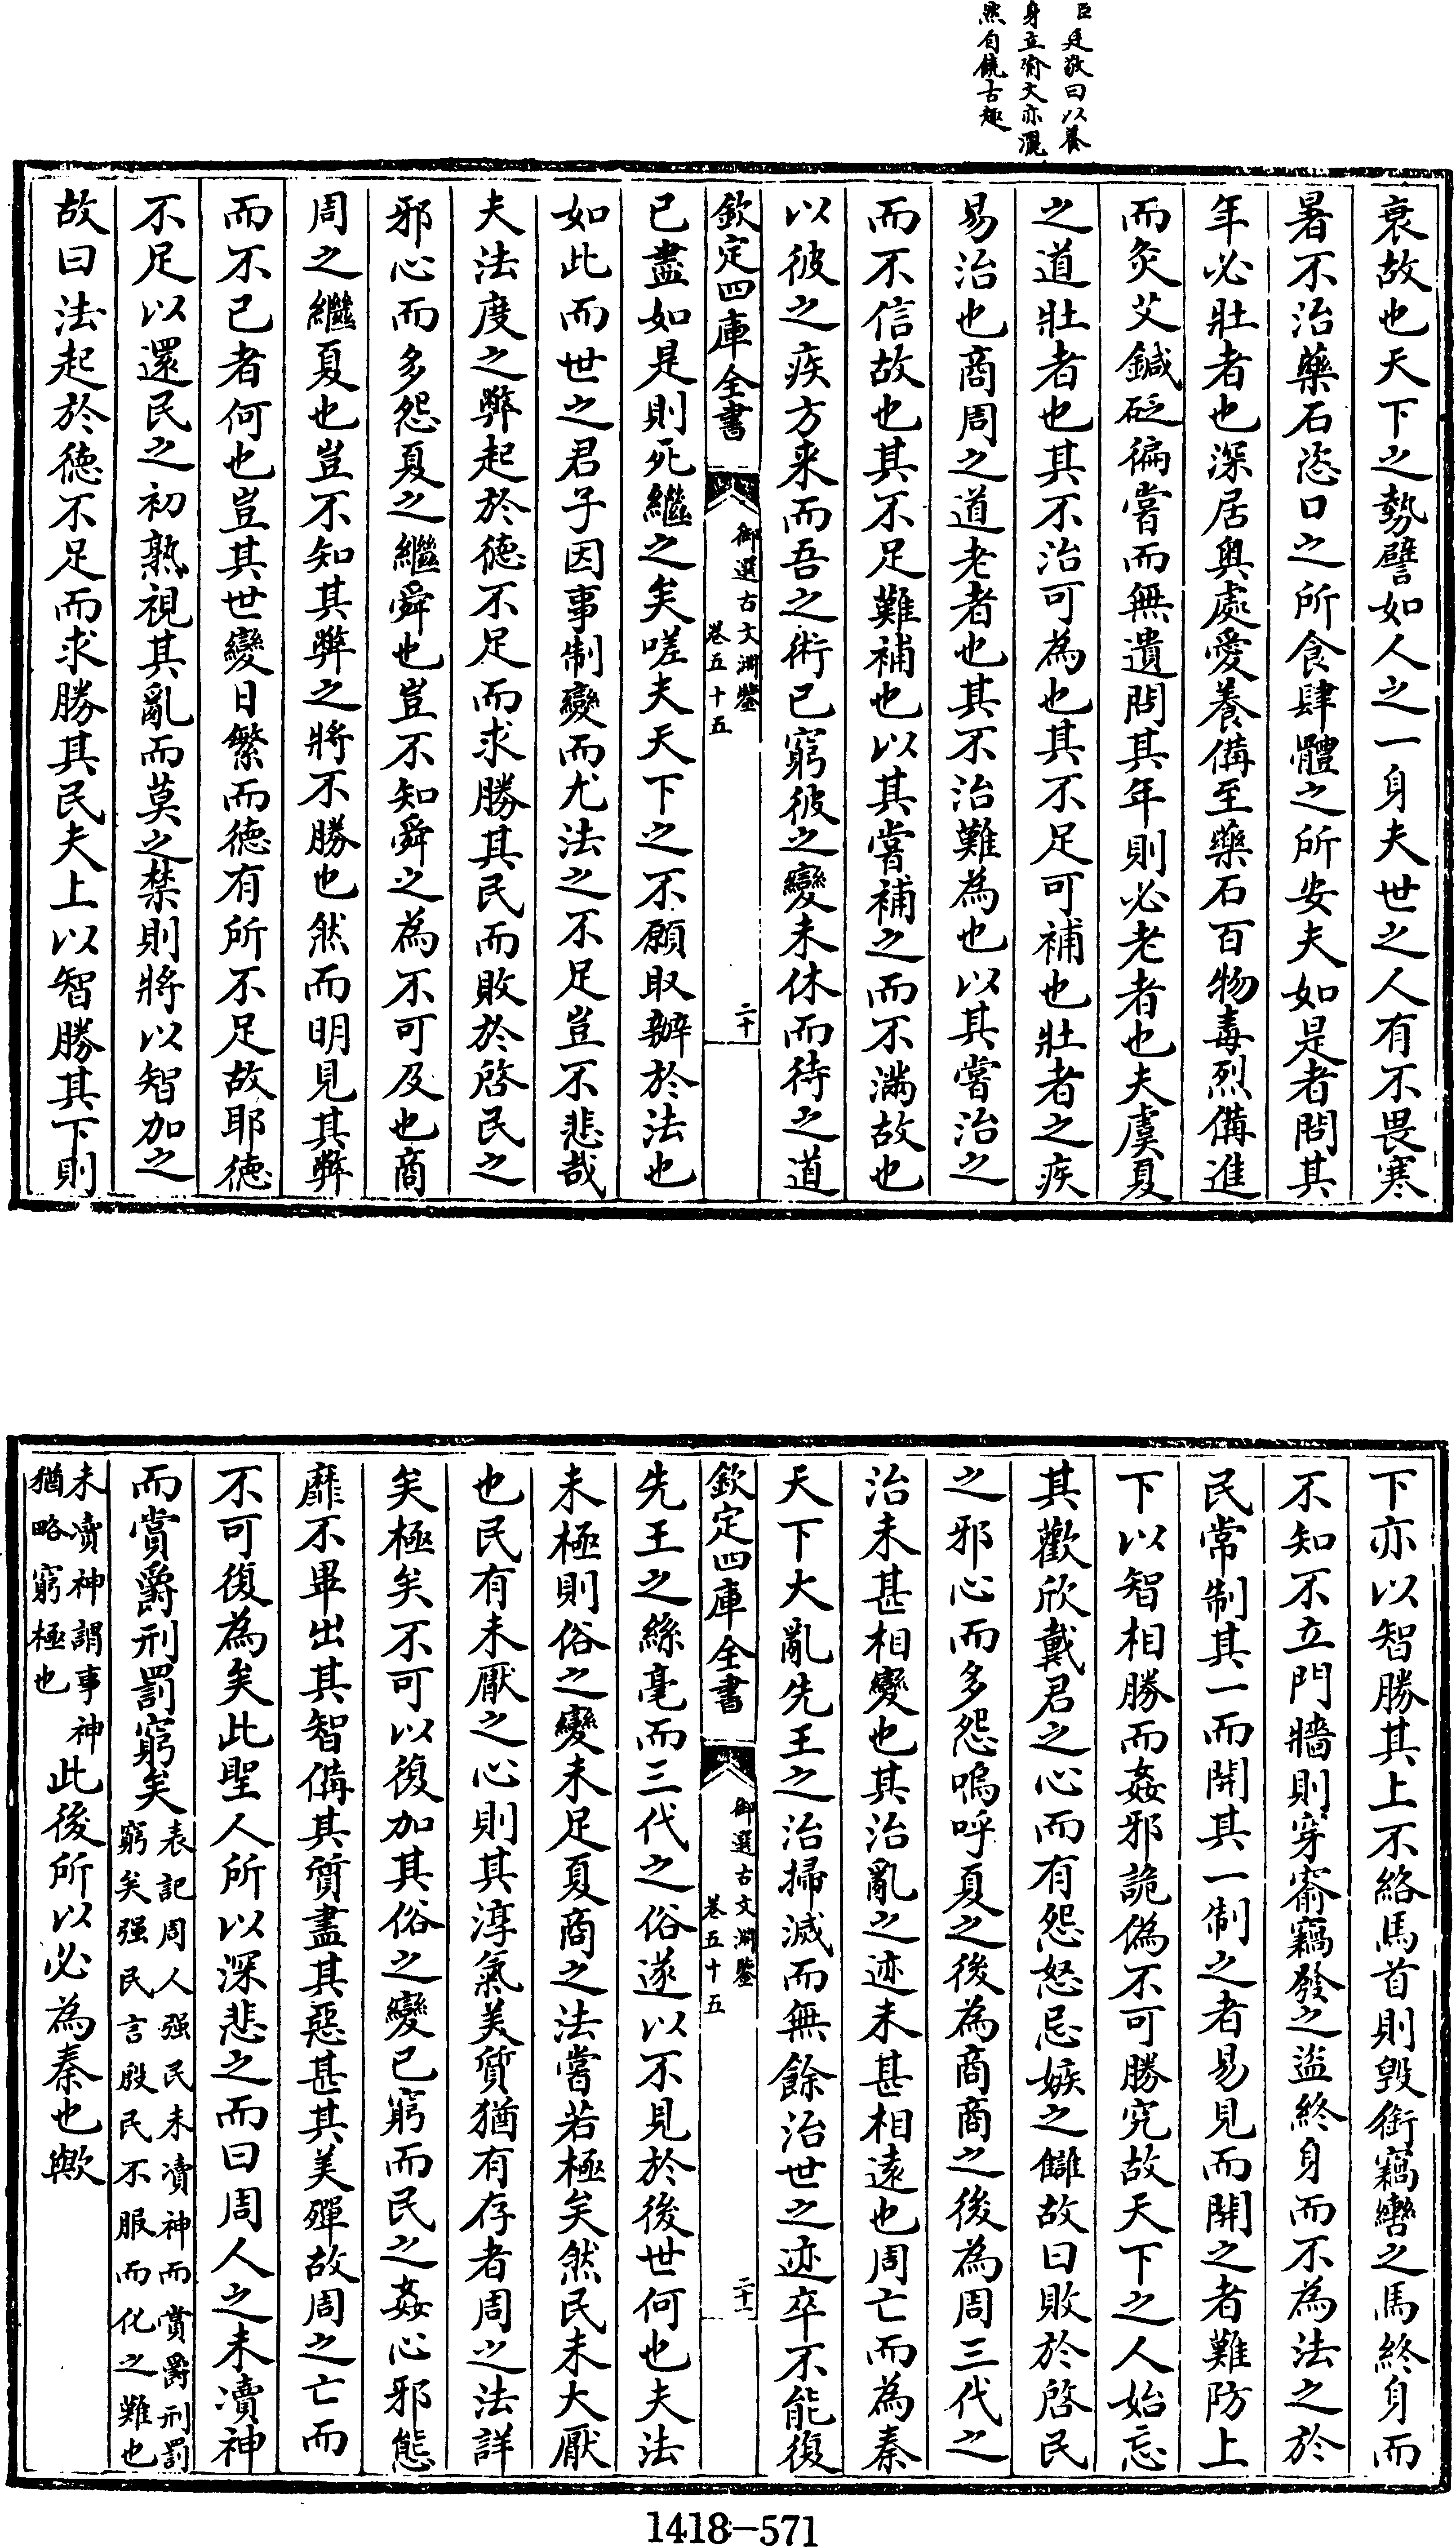 臣廷敬曰以養
身立喻文亦灑
然自饒古趣
衰故也天下之勢譬如人之一身夫世之人有不畏寒
暑不治藥石恣口之所食肆體之所安夫如是者問其
年必壯者也深居奧處愛養備至藥石百物毒烈備進
而灸艾鍼砭徧嘗而無遺問其年則必老者也夫虞夏
之道壯者也其不治可為也其不足可補也壯者之疾
易治也商周之道老者也其不治難為也以其嘗治之
而不信故也其不足難補也以其嘗補之而不滿故也
以彼之疾方来而吾之術已窮彼之變未休而待之道
欽定四庫全書
御選古文淵鑒
卷五十五
二十
已盡如是則死繼之矣嗟夫天下之不願取辦於法也
如此而世之君子因事制變而尤法之不足豈不悲哉
夫法度之弊起於德不足而求勝其民而敗於啓民之
邪心而多怨夏之繼舜也豈不知舜之為不可及也商
周之繼夏也豈不知其弊之將不勝也然而明見其弊
而不已者何也豈其世變日繁而德有所不足故耶德
不足以還民之初熟視其亂而莫之禁則將以智加之
故曰法起於德不足而求勝其民夫上以智勝其下則
下亦以智勝其上不絡馬首則毀銜竊轡之馬終身而
不知不立門牆則穿窬竊發之盜終身而不為法之於
民常制其一而開其一制之者易見而開之者難防上
下以智相勝而姦邪詭偽不可勝究故天下之人始忘
其歡欣戴君之心而有怨怒忌嫉之讎故曰敗於啓民
之邪心而多怨嗚呼夏之後為商商之後為周三代之
治未甚相變也其治亂之迹未甚相遠也周亡而為秦
天下大亂先王之治掃滅而無餘治世之迹卒不能復
欽定四庫全書
御選古文淵鑒
卷五十五
二十一
先王之絲毫而三代之俗遂以不見於後世何也夫法
未極則俗之變未足夏商之法嘗若極矣然民未大厭
也民有未厭之心則其淳氣美質猶有存者周之法詳
矣極矣不可以復加其俗之變已窮而民之姦心邪態
靡不畢出其智備其質盡其惡甚其美殫故周之亡而
不可復為矣此聖人所以深悲之而曰周人之未瀆神
而賞爵刑罰窮矣表記周人强民未瀆神而賞爵刑罰
窮矣强民言殷民不服而化之難也
未瀆神謂事神
猶略窮極也
此後所以必為秦也歟
1418-571